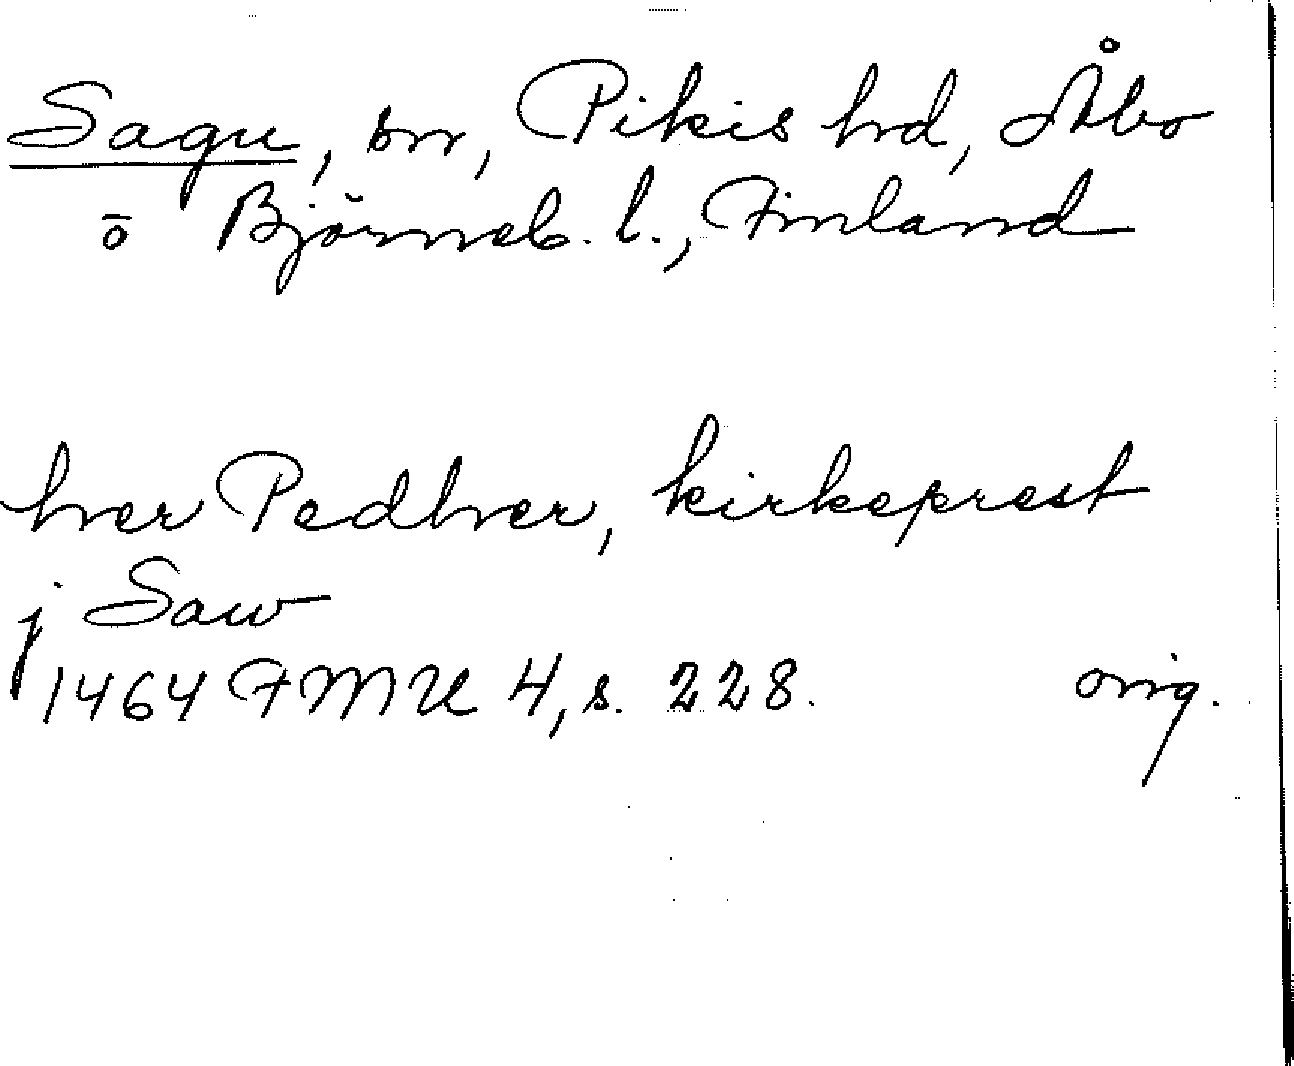 Sagu, sn, Pikis hd, Åbo
o Björneb. l., Finland
hver Pedhver, kirkeprest
j Saw
1464 FMU 4, s. 228. orig.